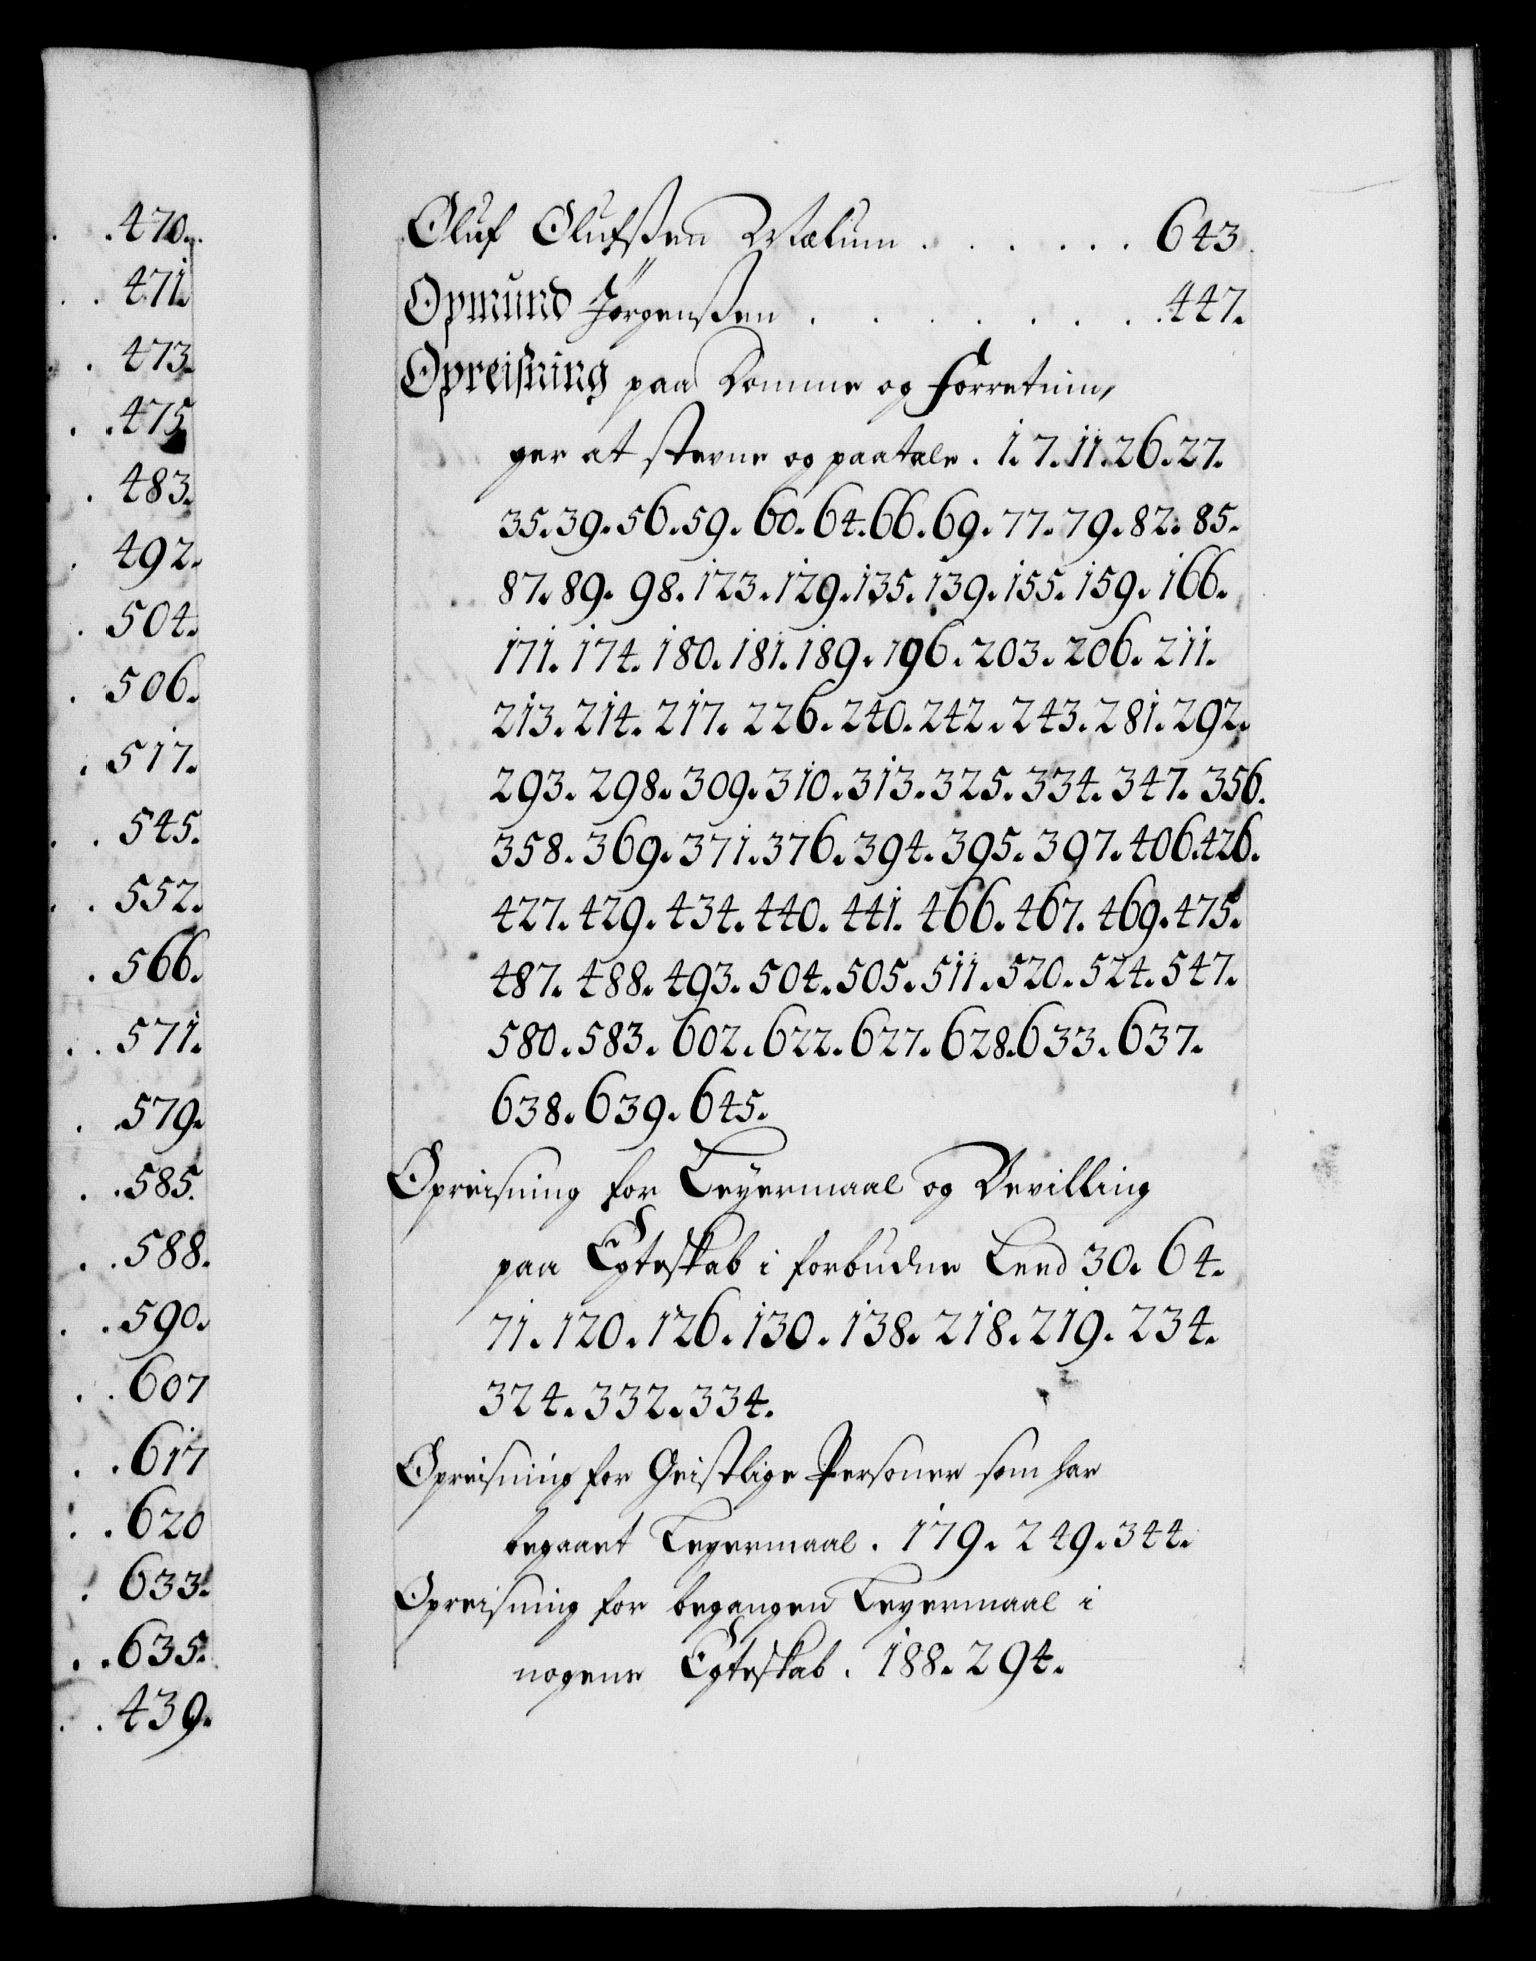 470.
471.
473.
475
483.
492.
504.
506.
517.
545.
552.
566.
571.
579.
585.
588.
590.
607
617
620
633.
635.
439.
Oluf Olufsßen . . . . . . 643.
Opmund Jörgenßen . . . . . . . 447.
Opreisning paa Domme og Forretnin,
ger at stevne og paatale. 1. 7. 11. 26. 27.
35. 39. 56. 59. 60. 64. 66. 69. 77. 79. 82. 85.
87. 89. 98. 123. 129. 135. 139. 155. 159. 166.
171. 174. 180. 181. 189. 196. 203. 206. 211.
213. 214. 217. 226. 240. 242. 243. 281. 292.
293. 298. 309. 310. 313. 325. 334. 347. 356.
358. 369. 371. 376. 394. 395. 397. 406. 426.
427. 429. 434. 440. 441. 466. 467. 469. 475.
487. 488. 493. 504. 505. 511. 520. 524. 547.
580. 583. 602. 622. 627. 628. 633. 637.
638. 639. 645.
Opreisning for Leyermaal og Bevilling
paa Egteskab i forbudne Leed 30. 64.
71. 120. 126. 130. 138. 218. 219. 234.
324. 332. 334.
Opreisning for Geistlige Personer som har
begaaet Leyermaal. 179. 249. 344.
Opreisning for begangen Leyermaal i
nogene Egteskab. 188. 294.